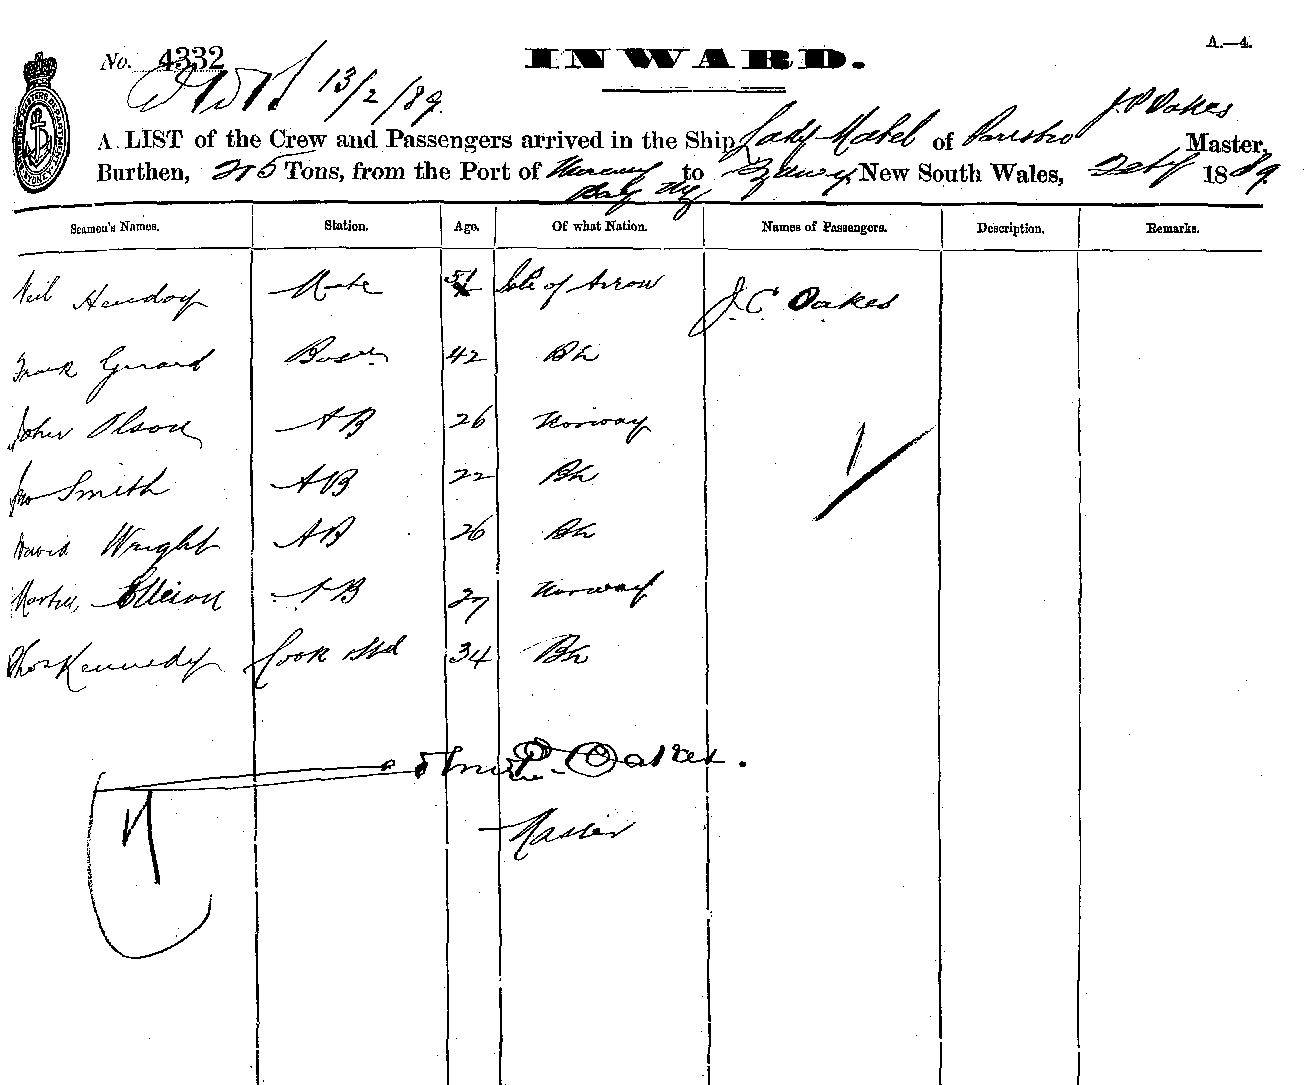 A.—4.
No. 4332
INWARD.
13/2/89.
J. P. Oakes
A LIST of the Crew and Passengers arrived in the Ship Lady Mabel of Master,
Burthen, 275 Tons, from the Port of Mercury to Sydney New South Wales, Feby 1889.
Bay NZ
Seamen's Names. Station. Age. Of what Nation. Names of Passengers. Description. Remarks.
Neil Mate 51 Isle of Arrow J. C. Oakes
Frank Gerard Bosun 42 Bh
John Olson AB 26 Norway
Jno Smith AB 22 Bh
David Wright AB 26 Bh
Martin Ellison AB 27 Norway
Thos Kennedy Cook Std 34 Bh
1
John P. Oakes.
Master
7